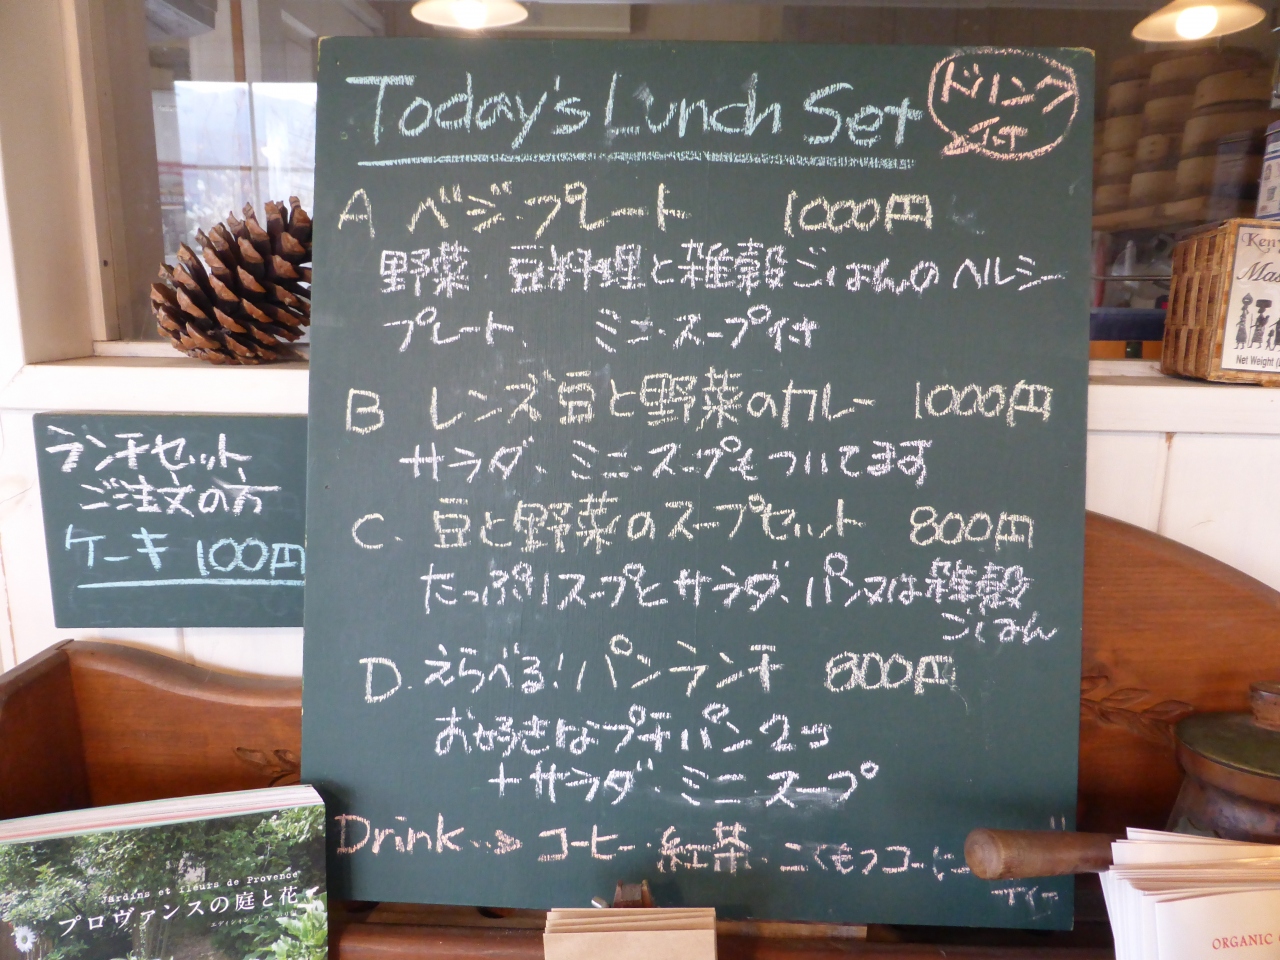 Today's Lunch Set
ドリンク
付
A ベジ・プレート 1000円
野菜・豆料理と雑穀ごはんのヘルシー
プレート、ミニ・スープ付
B レンズ豆と野菜のカレー 1000円
サラダ、ミニ・スープもついてます
C. 豆と野菜のスープセット 800円
たっぷりスープとサラダ、パン又は雑穀
ごはん
D. えらべる!パンランチ 800円
お好きなプチパン2つ
+サラダ・ミニ・スープ
Drink…» コーヒー・紅茶・こくもつコーヒー
ティー
ランチセット
ご注文の方
ケーキ 100円
Jardins et fleurs de Provence
プロヴァンスの庭と花
Net Weight
ORGANIC